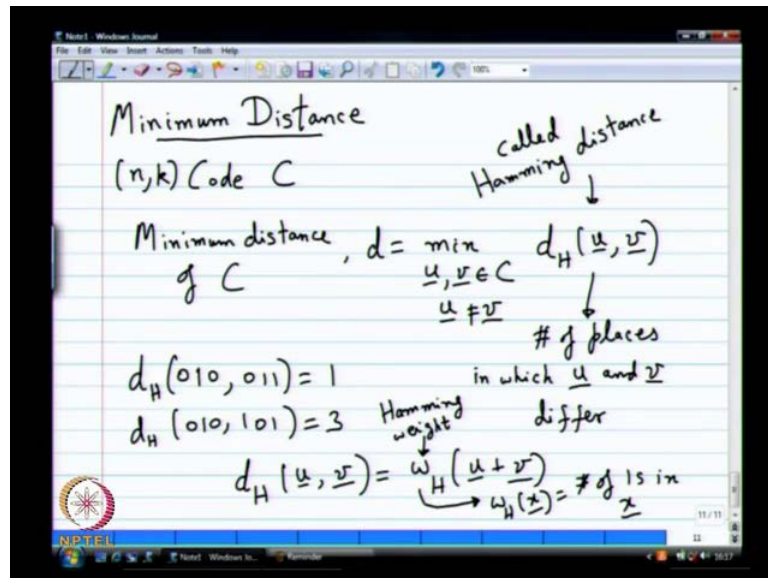 Note1 - Windows Journal
File Edit View Insert Actions Tools Help
100%
Minimum Distance
(n,k) Code C
called
Hamming distance
Minimum distance of C, d = min d_H(u, v)
u, v ∈ C
u ≠ v
# of places
in which u and v
differ
d_H(010, 011) = 1
d_H(010, 101) = 3
Hamming
weight
d_H(u, v) = w_H(u + v)
w_H(x) = # of 1s in
x
11 / 11
11
NPTEL
Note1 - Windows Jo... Reminder
16:17